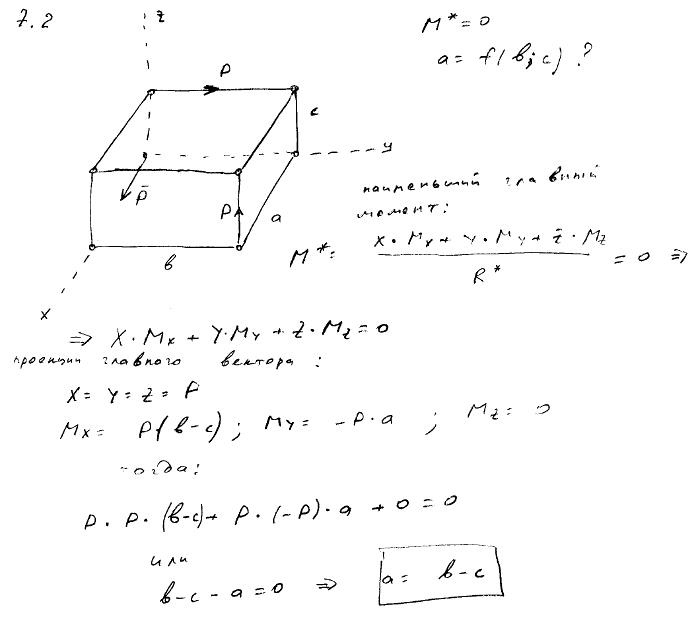 7.2
M* = 0
a = f(в; c) ?
z
P
c
y
P̄
P
a
в
x
наименьший главный
момент:
M* = (X · Mx + Y · My + Z · Mz) / R* = 0 ⇒
⇒ X · Mx + Y · My + Z · Mz = 0
проекции главного вектора :
X = Y = Z = P
Mx = P(в-c) ; My = -P · a ; Mz = 0
тогда:
P · P · (в-c) + P · (-P) · a + 0 = 0
или
в - c - a = 0 ⇒ a = в - c